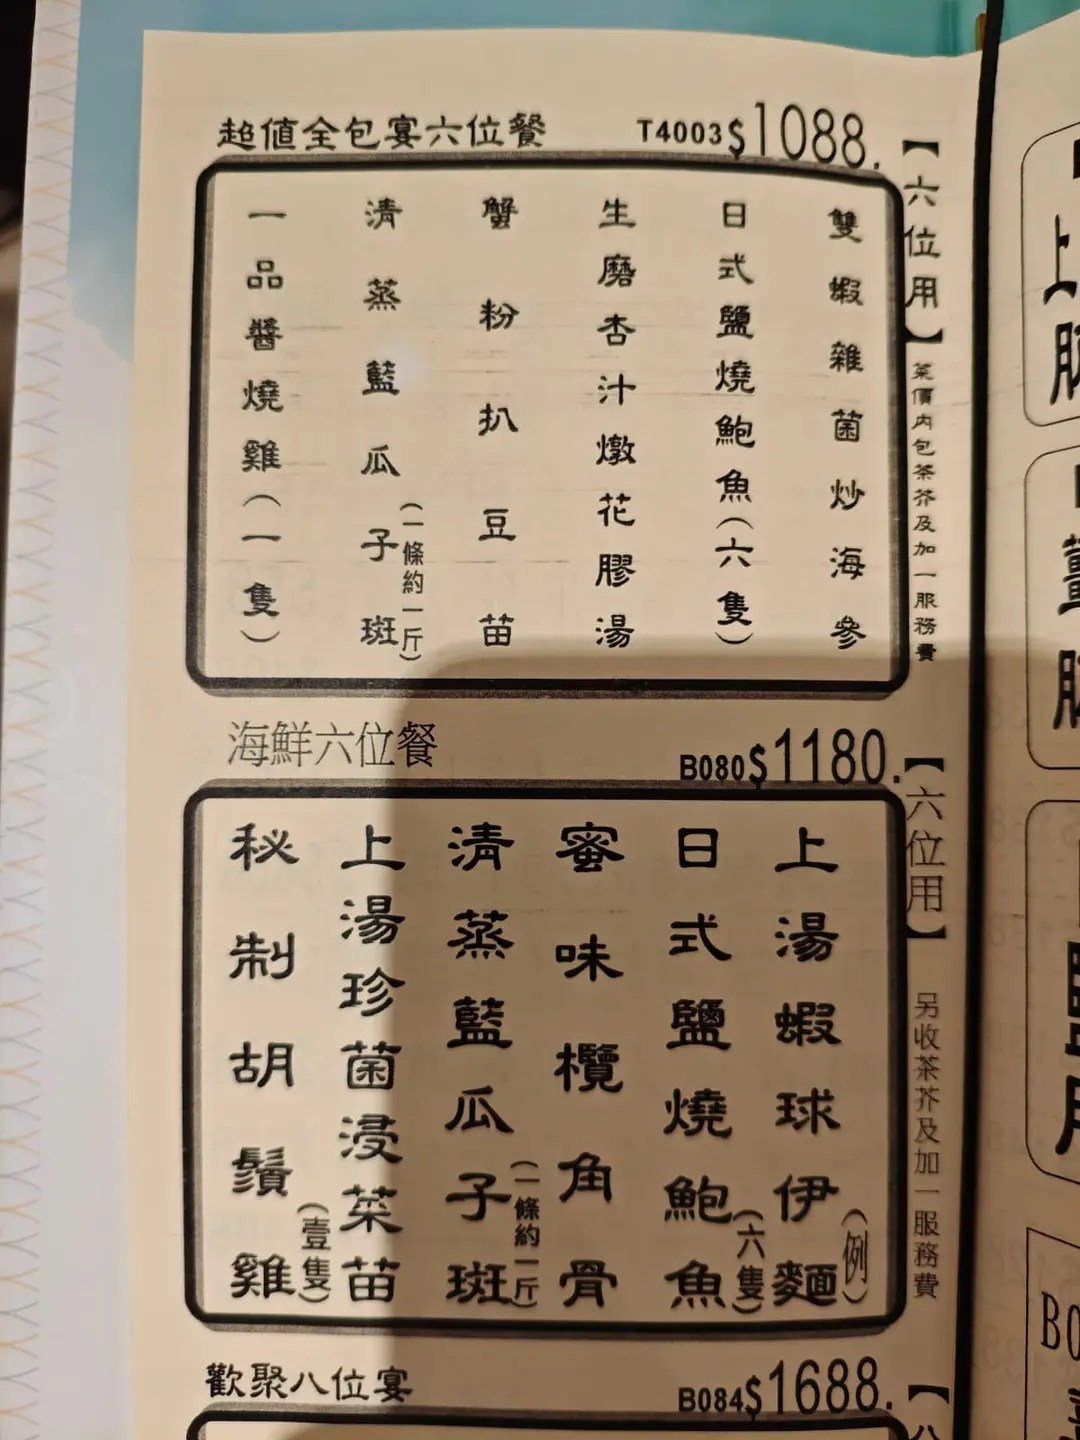 超值全包宴六位餐 T4003 $1088.
【六位用】菜價內包茶芥及加一服務費
雙蝦雜菌炒海參
日式鹽燒鮑魚(六隻)
生磨杏汁燉花膠湯
蟹粉扒豆苗
清蒸藍瓜子斑(一條約一斤)
一品醬燒雞(一隻)
海鮮六位餐 B080 $1180.
【六位用】另收茶芥及加一服務費
上湯蝦球伊麵(例)
日式鹽燒鮑魚(六隻)
蜜味欖角骨
清蒸藍瓜子斑(一條約一斤)
上湯珍菌浸菜苗
秘制胡鬚雞(壹隻)
歡聚八位宴 B084 $1688.